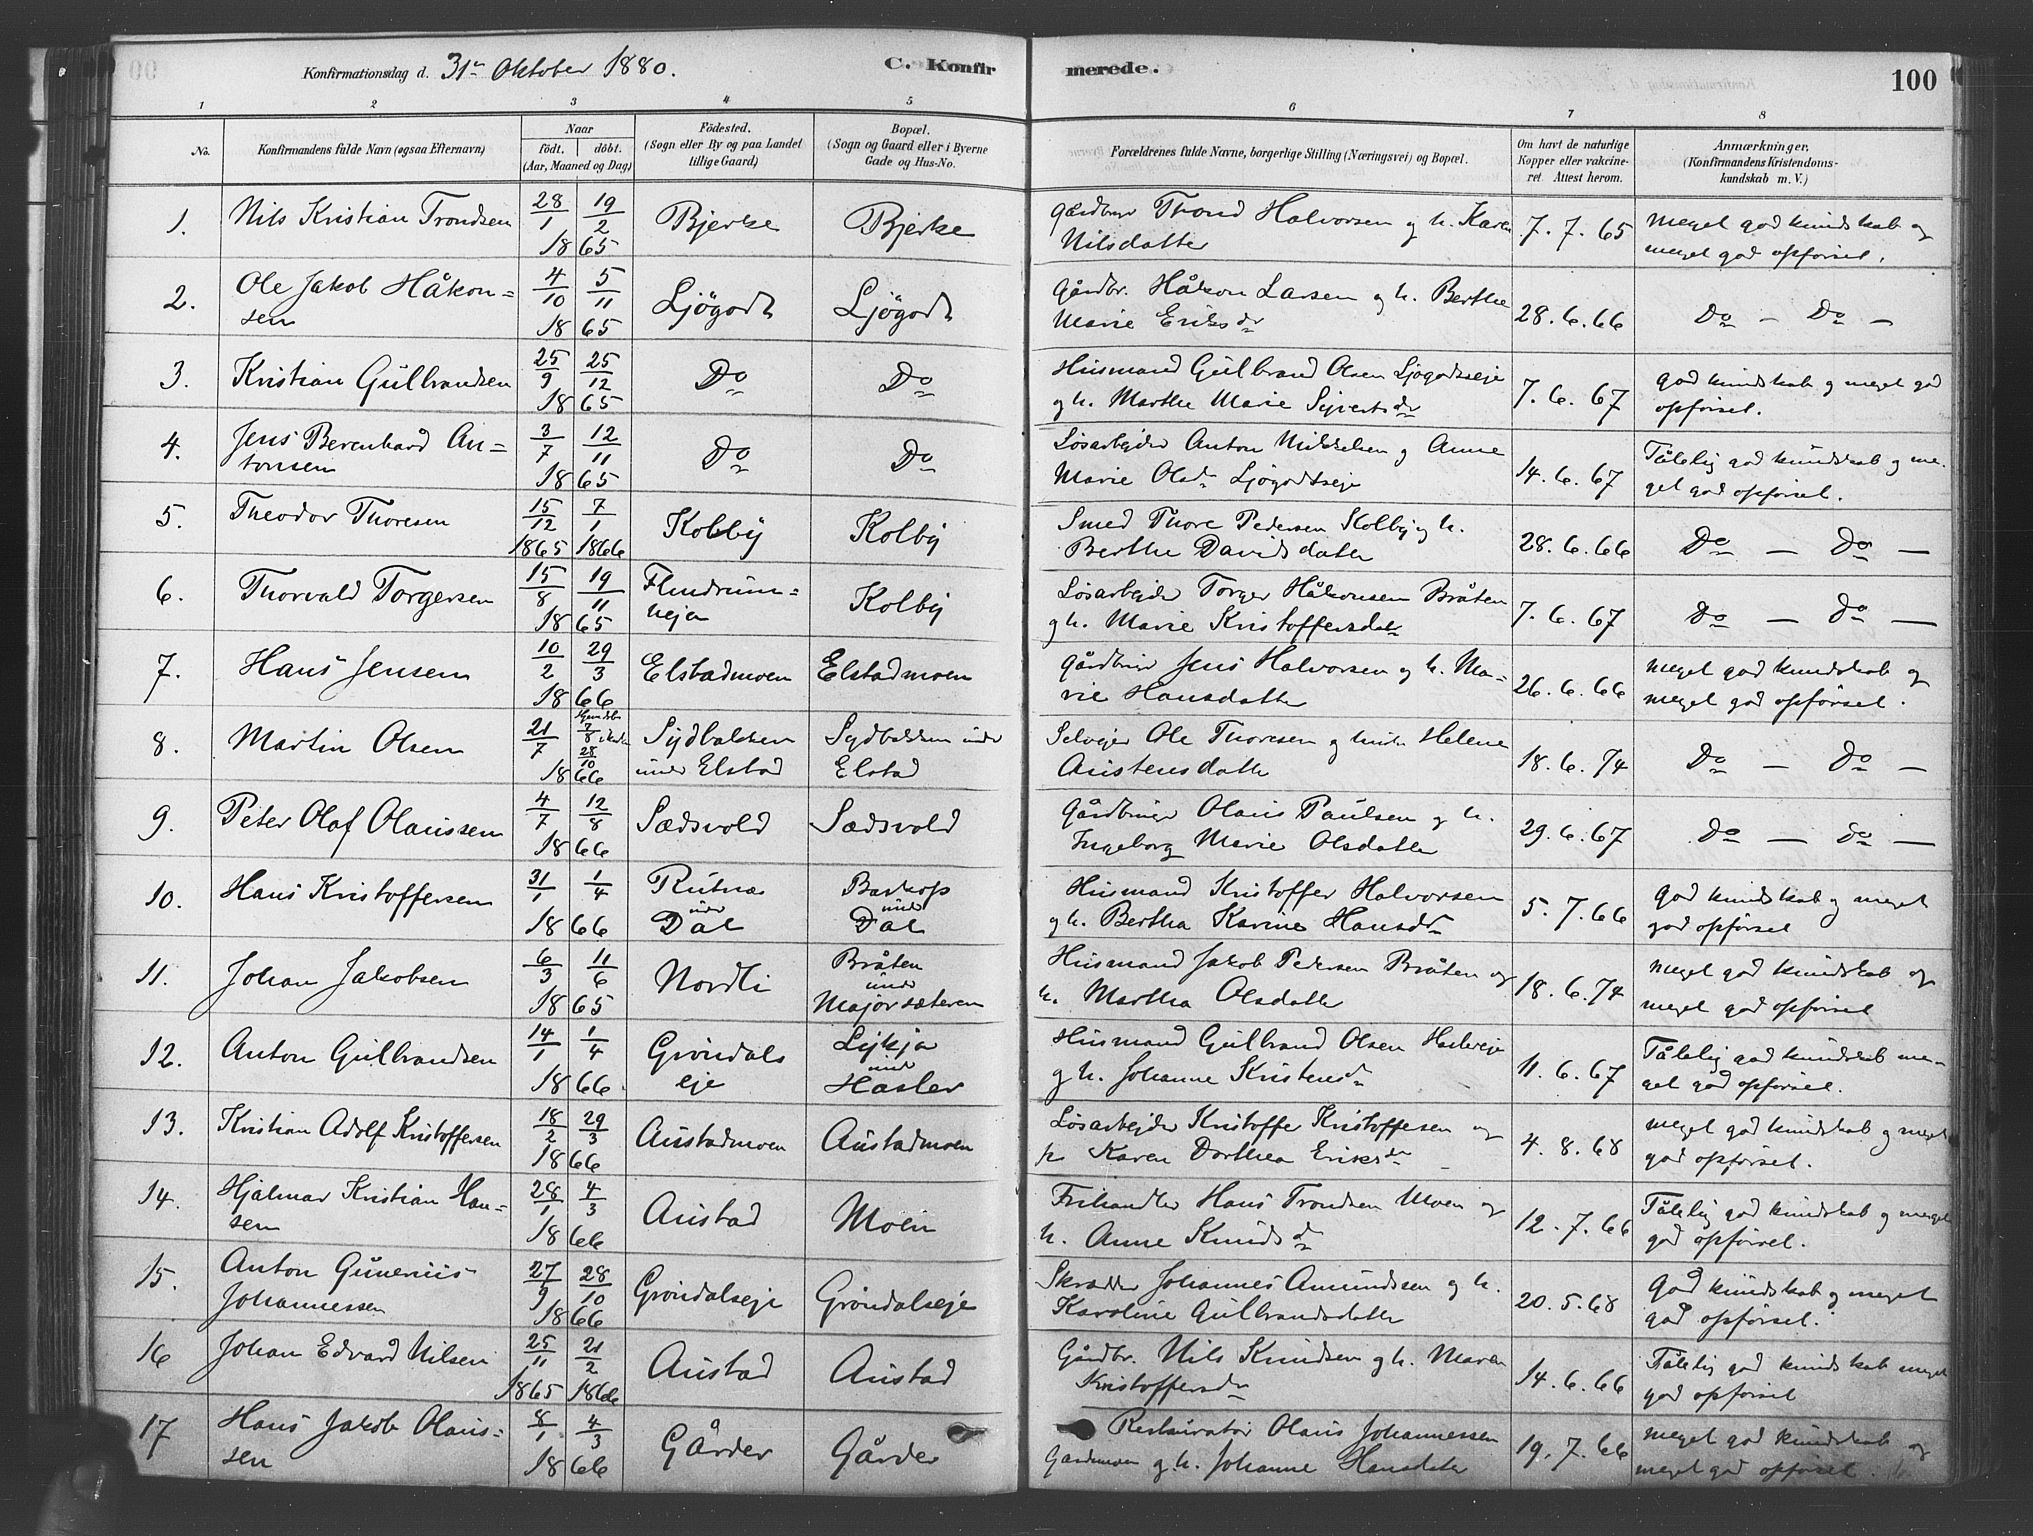 Konfirmationsdag d. 31te Oktober 1880. C. Konfir merede. 100
1 2 3 4 5 6 7 8
No. Konfirmandens fulde Navn (ogsaa Efternavn) Naar födt. döbt. (Aar, Maaned og Dag) Födested. (Sogn eller By og paa Landet tillige Gaard) Bopæl. (Sogn og Gaard eller i Byerne Gade og Hus-No. Forældrenes fulde Navne, borgerlige Stilling (Næringsvei) og Bopæl. Om havt de naturlige Kopper eller vakcineret Attest herom. Anmærkninger. (Konfirmandens Kristendomskundskab m. V.)
1. Nils Kristian Trondsen 28/1 19/2 1865 Bjerke Bjerke Gårdbruger Trond Halvorsen og h. Karen Nilsdatter 7. 7. 65 meget god kundskab og meget god opførsel.
2. Ole Jakob Håkonsen 4/10 5/11 1865 Ljögodt Ljögodt Gårdbr. Håkon Larsen og h. Berthe Marie Eriksdr 28. 6. 66 Do — Do —
3. Kristian Gulbrandsen 25/9 25/12 1865 Do Do Husmand Gulbrand Olsen Ljögodtseje og h. Marthe Marie Sjvertsdr 7. 6. 67 god kundskab og meget god opførsel.
4. Jens Berenhard Antonsen 3/7 12/11 1865 Do Do Løsarbejder Anton Mikkelsen og Anne Marie Olsdr Ljögodtseje 14. 6. 67 Tålelig god kundskab og meget god opførsel.
5. Theodor Thoresen 15/12 1865 7/1 1866 Kolby Kolby Smed Thore Pedersen Kolby og h. Berthe Davidsdatter 28. 6. 66 Do — Do —
6. Thorvald Torgersen 15/8 19/11 1865 Flendrumseje Kolby Løsarbejder Torger Håkonsen Bråten og h. Marie Kristoffersdatr 7. 6. 67 Do — Do —
7. Hans Jensen 10/2 29/3 1866 Elstadmoen Elstadmoen Gårdbruger Jens Halvorsen og h. Marie Hansdatter 26. 6. 66 meget god kundskab og meget god opførsel.
8. Martin Olsen 21/7 7/8 28/10 1866 Sydbakken under Elstad Sydbakken under Elstad Selvejer Ole Thoresen og hustr. Helene Austensdatter 18. 6. 74 Do — Do —
9. Peter Olaf Olaussen 4/7 12/8 1866 Sædsvold Sædsvold Gårdbruger Olaus Paulsen og h. Ingeborg Marie Olsdatter 29. 6. 67 Do — Do —
10. Hans Kristoffersen 31/1 1/4 1866 Rutnæs under Dal Barkop under Dal Husmand Kristoffer Halvorsen og h. Bertha Karine Hansdr 5. 7. 66 god kundskab og meget god opførsel
11. Johan Jakobsen 6/3 11/6 1865 Nordli Bråten under Majorsæteren Husmand Jakob Pedersen Bråten og h. Martha Olsdatter 18. 6. 74 meget god kundskab og meget god opførsel
12. Anton Gulbrandsen 14/1 1/4 1866 Gröndals eje Lykja under Hasler Husmand Gulbrand Olsen Haslereje og h. Johanne Kristensdr 11. 6. 67 Tålelig god kundskab meget god opførsel.
13. Kristian Adolf Kristoffersen 18/2 29/3 1866 Austadmoen Austadmoen Løsarbejder Kristoffer Kristoffersen og h. Karen Dorthea Eriksdr 4. 8. 68 meget god kundskab og meget god opførsel.
14. Hjalmar Kristian Hansen 28/1 4/3 1866 Austad Moen Frihandler Hans Trondsen Moen og h. Anne Knudsdr 12. 7. 66 Tålelig god kundskab og meget god opførsel.
15. Anton Gunerius Johannessen 27/9 28/10 1866 Gröndalseje Gröndalseje Skrædder Johannes Amundsen og h. Karoline Gulbrandsdatter 20. 5. 68 God kundskab og meget god opførsel.
16 Johan Edvard Nilsen 25/11 1865 21/2 1866 Austad Austad Gårdbr. Nils Knudsen og h. Maren Kristoffersdr 14. 6. 66 Tålelig god kundskab meget god opførsel
17 Hans Jakob Olaussen 8/1 4/3 1866 Gårder Gårder Restauratør Olaus Johannessen Gardmoen og h. Johanne Hansdatter 19. 7. 66 meget god kundskab og meget god opførsel.